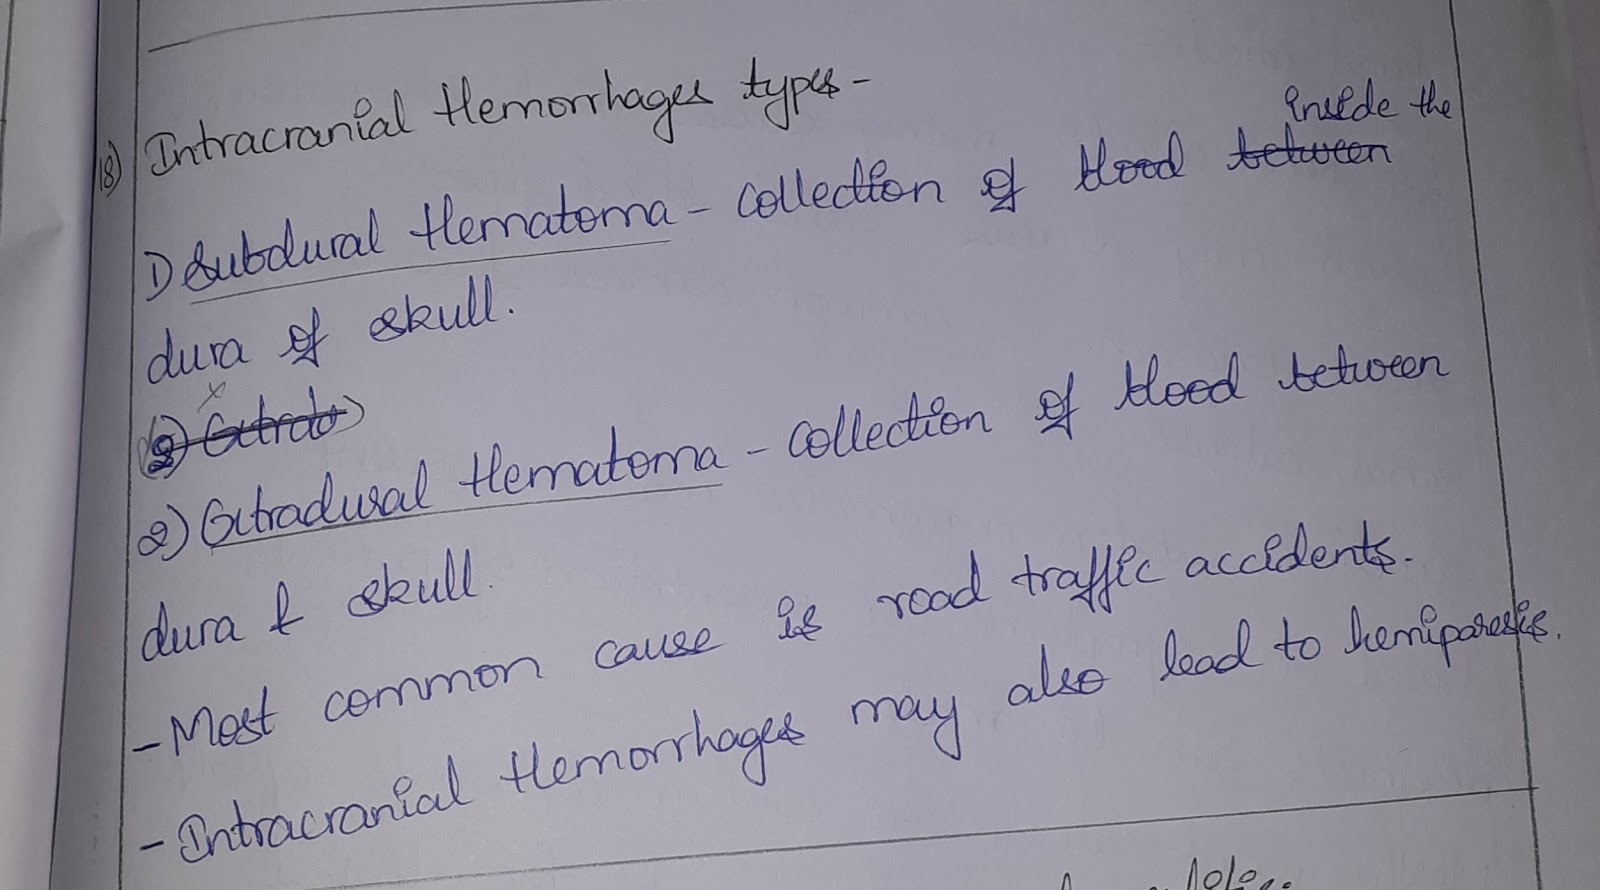 18) Intracranial Hemorrhages types -
1) Subdural Hematoma - collection of blood between inside the
dura of skull.
2) Extradu
2) Extradural Hematoma - collection of blood between
dura & skull.
- Most common cause is road traffic accidents.
- Intracranial Hemorrhages may also lead to hemiparesis.